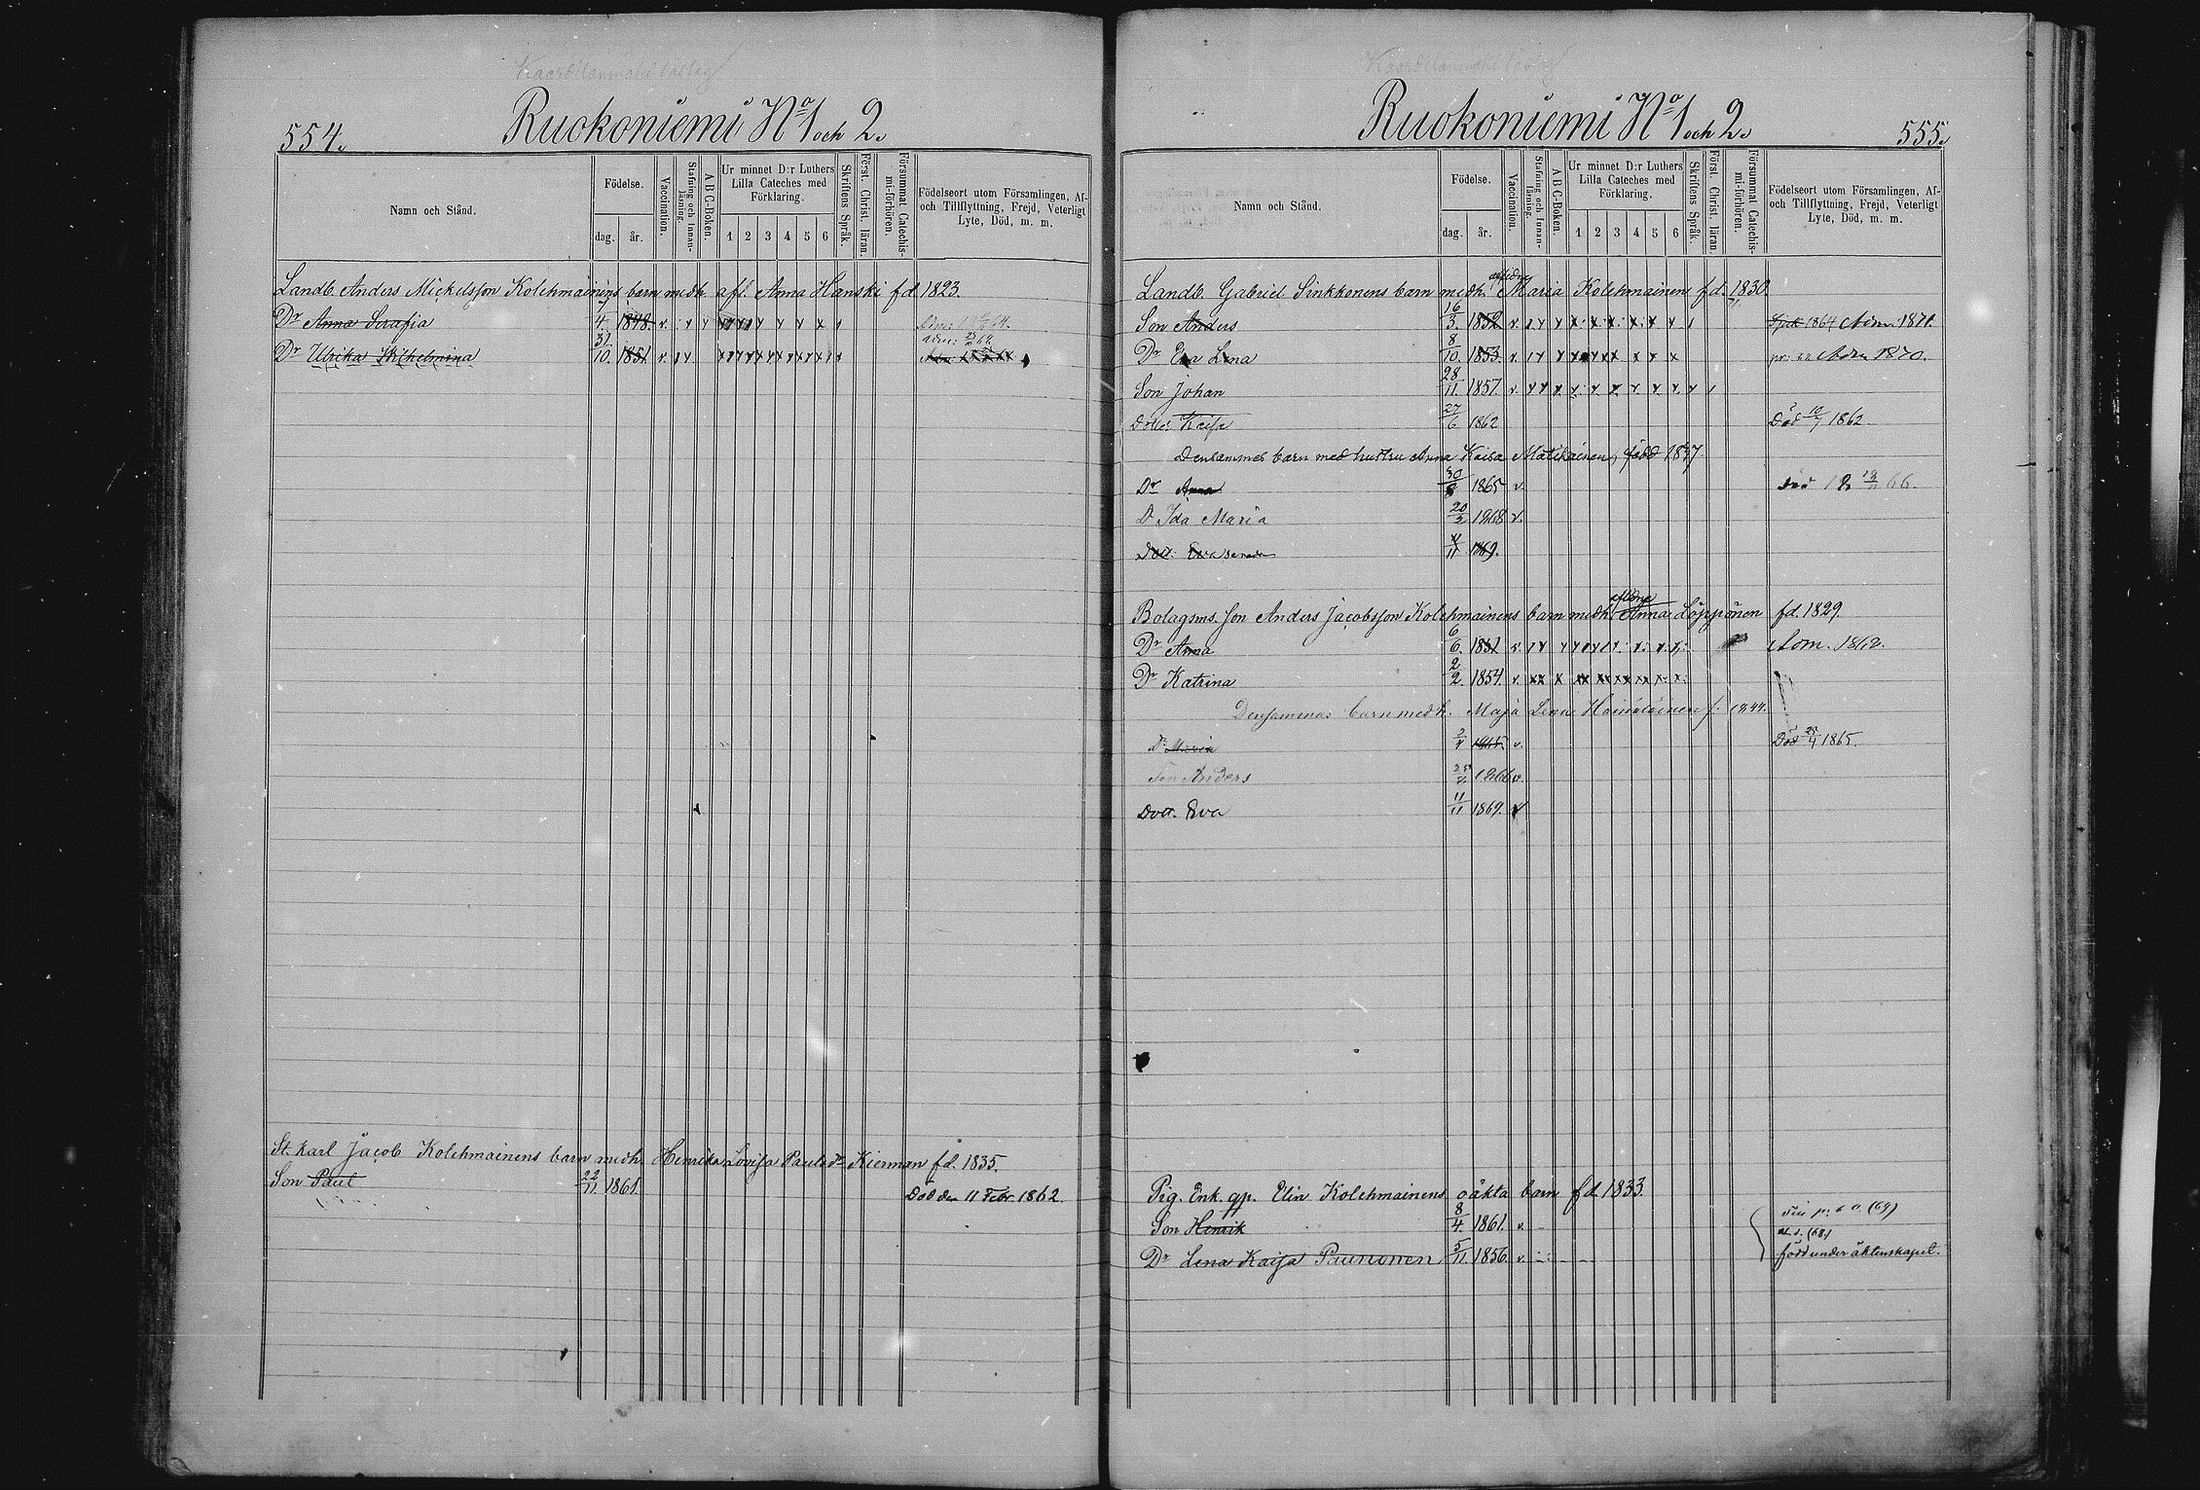 554.
Ruokoniemi No 1 och 2.
Namn och Stånd.
Födelse.
dag.
år.
Vaccination.
Stafning och Innanläsning.
A B C-Boken.
Ur minnet D:r Luthers Lilla Cateches med Förklaring.
1 2 3 4 5 6
Skriftens Språk.
Först. Christ. läran.
Försummat Catechismi-förhören.
Födelseort utom Församlingen, Af- och Tillflyttning, Frejd, Veterligt Lyte, Död, m. m.
Landb. Anders Mickelsson Kolehmainens barn medh. afl. Anna Hanski fd. 1823.
Dr Anna Serafia 4. 1848. v.
Dr Ulrika Wilhelmina 31/10. 1851. v.
St. Karl Jacob Kolehmainens barn medh. Henrika Lovisa Paulsdr Kierman fd. 1835.
Son Paul 22/11. 1861. Död den 11 Febr. 1862.
555.
Ruokoniemi No 1 och 2.
Namn och Stånd.
Födelse.
dag.
år.
Vaccination.
Stafning och Innanläsning.
A B C-Boken.
Ur minnet D:r Luthers Lilla Cateches med Förklaring.
1 2 3 4 5 6
Skriftens Språk.
Först. Christ. läran.
Försummat Catechismi-förhören.
Födelseort utom Församlingen, Af- och Tillflyttning, Frejd, Veterligt Lyte, Död, m. m.
Landb. Gabriel Sinkkonens barn medh. Maria Kolehmainen fd. 1830.
Son Anders 16/3. 1852 v. 1864 Adm. 1871.
Dr Eva Lena 8/10. 1853. v. Adm 1870.
Son Johan 28/11. 1857. v.
Dotter Kaisa 27/6 1862 Död 10/7 1862.
Densammes barn med hustru Anna Kaisa Matikainen, född 1837
Dr Anna 30 1865 v.
D Ida Maria 20/3 1868 v.
Dott. Eva 11 1869.
Bolagsms. son Anders Jacobsson Kolehmainens barn medh. Anna Löppönen fd. 1829.
Dr Anna 6/6. 1851 v. Adm. 1868.
Dr Katrina 2/2. 1854. v.
Densammes barn medh. Maja Lena Hämäläinen f. 1844.
Dr Maria 2/4 1865 v. Död 23/4 1865.
Son Anders 1866 v.
Dott. Eva 11/11 1869. v
Pig. Enk. gp. Elin Kolehmainens oäkta barn fd. 1833.
Son Henrik 8/4. 1861. v.
Dr Lena Kaisa Paunonen 5/11. 1856. v. född under äktenskapet.